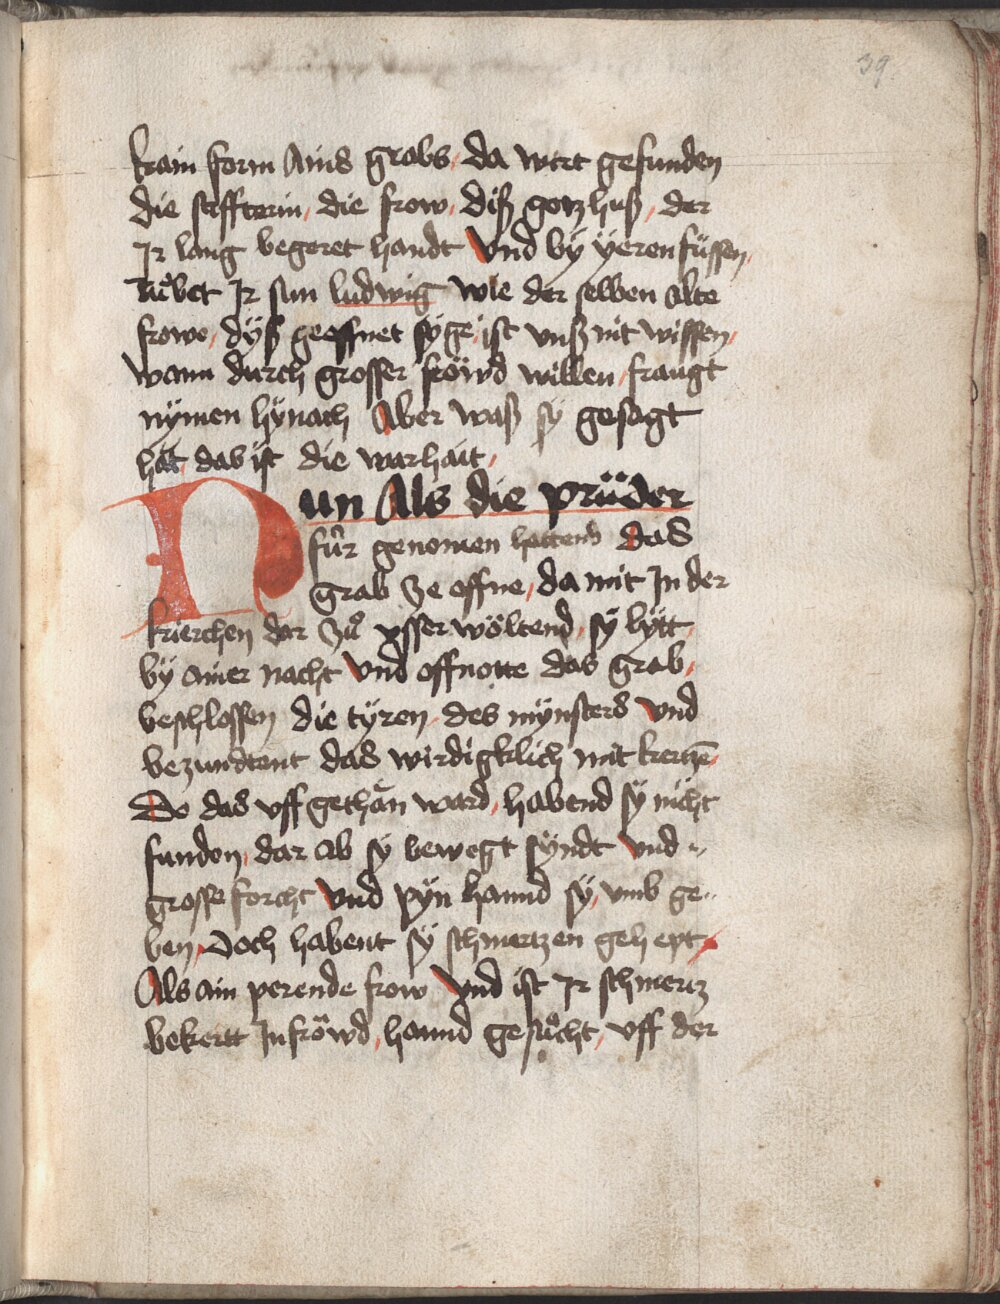 39
kain form Ains grabs, da wirt gefunden
die stiffterin, die frow, diß gotzhuß, der
Ir lang begeret handt Vnd by yeren füssen,
Ruͦbet Ir sun ludwig Wie der selben alte
frowe, dyß geoffnet syge, ist vnß nit wissen,
wann durch grosser fröwd willen, fraugt
nymen hynach Aber waß sy gesagt
hat, das ist die warhait,
Nun Als die prüder
für genomen hettend das
grab ze offne, da mit In der
krierchen dar zuͦ vsser wöltend, sy bytt
by ainer nacht Vnd offnotte das grab,
beschlossen die tyren, des mynsters Vnd
bezundtent das wirdigklich mit kertzē,
Do das vff gethan ward, habend sy nicht
funden, dar ab sy bewegt syndt Vnd
grosse forcht Vnd pyn hannd sy, vmb ge
ben, doch habent sy schmertzen gehept,
Als ain perende frow Vnd ist Ir schmertz
bekertt In fröwd, hannd gesuͦcht, vff der